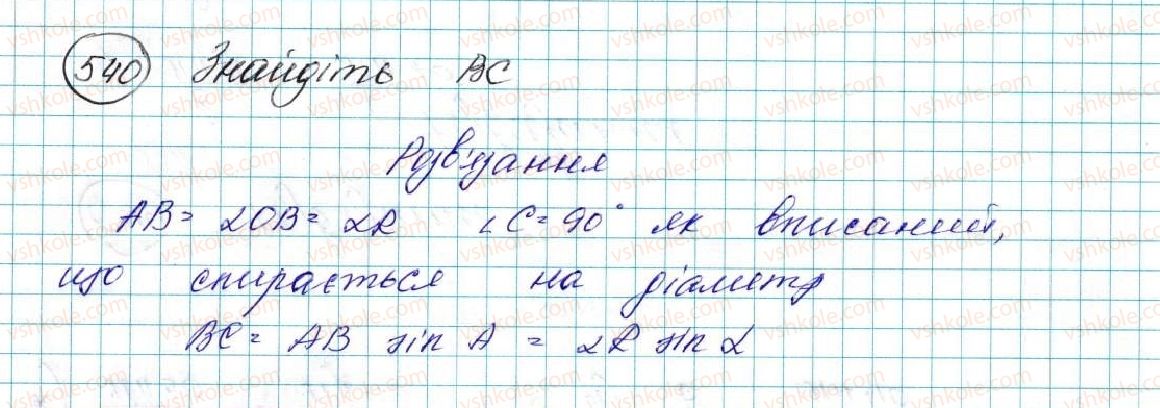 540 Знайдіть BC
Розв'язання
AB = 2OB = 2R ∠C = 90° як вписаний,
що спирається на діаметр
BC = AB sin A = 2R sin α